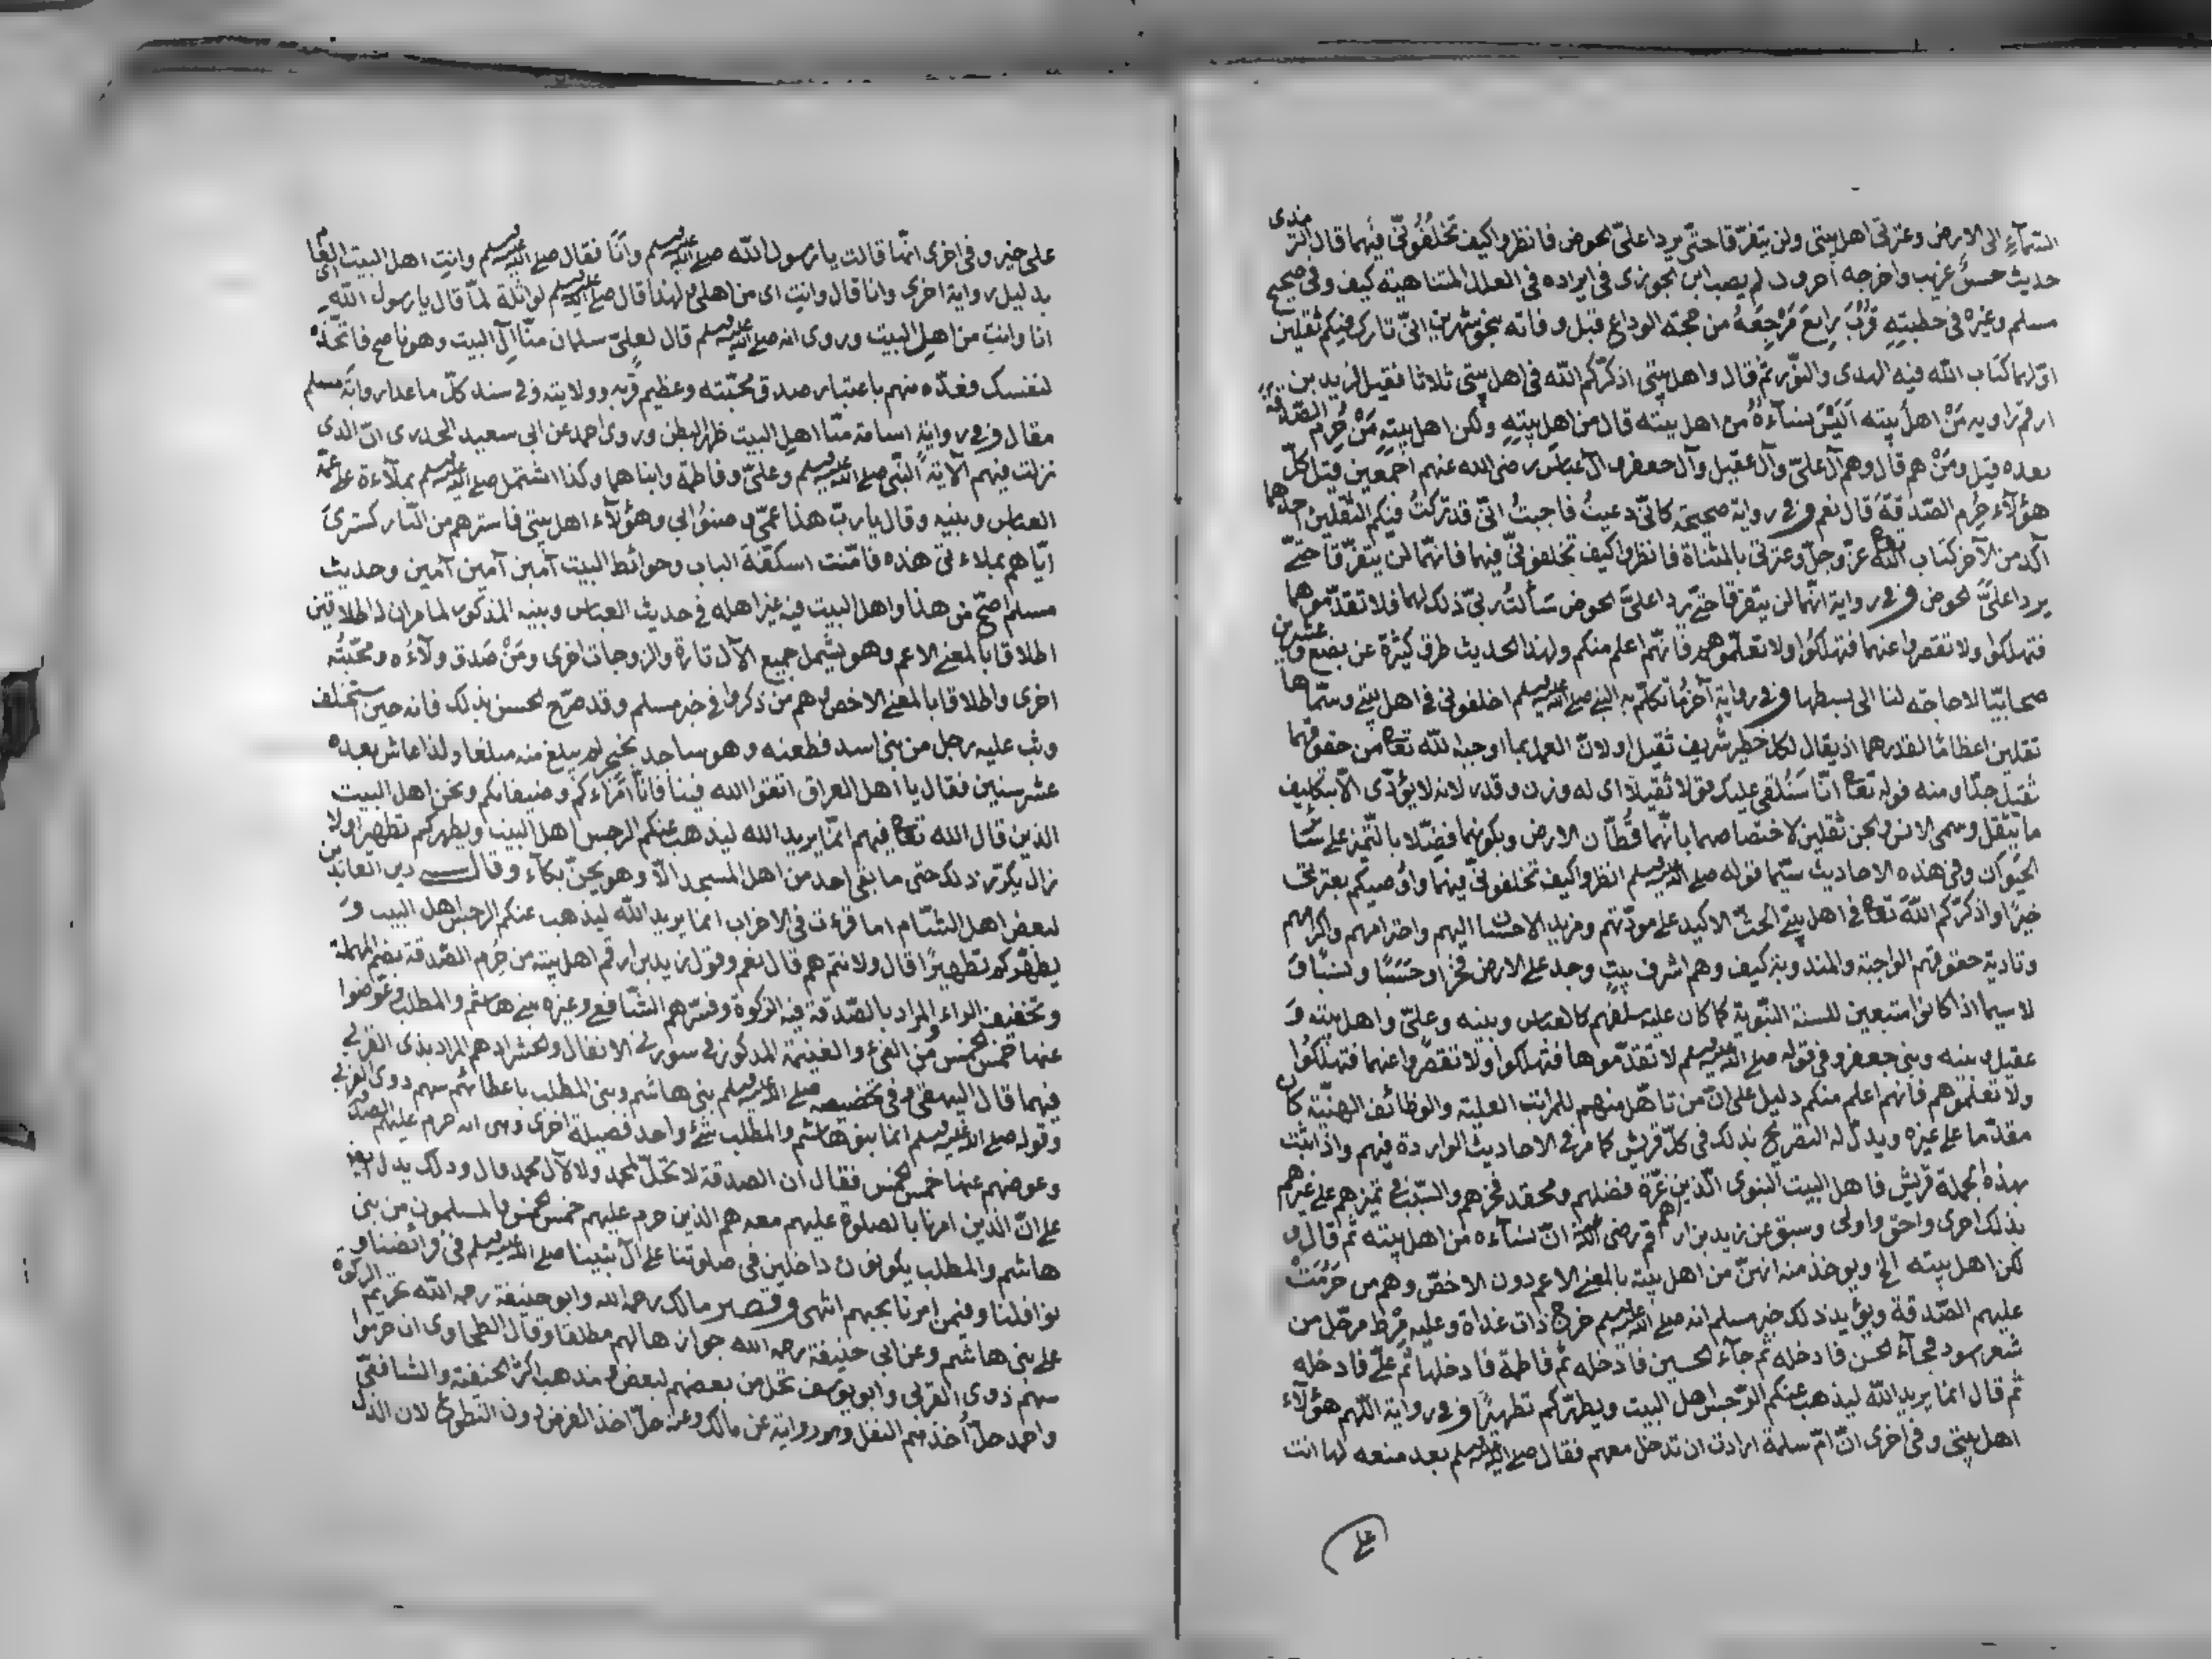 السمآء الى الارض وعترتى اهل بيتى ولن يتفرقا حتى يردا علىّ الحوض فانظروا كيف تخلفونى فيهما قال الترمذى
حديث حسن غريب واخرجه آخرون ولم يصب ابن الجوزى فى ايراده فى العلل المتناهية كيف وفى صحيح
مسلم وغيره فى خطبته قرب رابغ مرجعه من حجة الوداع قبل وفاته بنحو شهر انى تارك فيكم ثقلين
اولهما كتاب الله فيه الهدى والنور ثم قال واهل بيتى اذكركم الله فى اهل بيتى ثلاثا فقيل لزيد بن
ارقم راويه من اهل بيته اليس نسآءه من اهل بيته قال من اهل بيته ولكن اهل بيته من حرم الصدقة
بعده قيل ومن هم قال وهم آل علىّ وآل عقيل وآل جعفر وآل عباس رضى الله عنهم اجمعين قيل كل
هؤلآء حرم الصدقة قال نعم وفى رواية صحيحة كانى دعيت فاجبت انى قد تركت فيكم الثقلين احدهما
آكد من الآخر كتاب الله عز وجل وعترتى بالمثناة فانظروا كيف تخلفونى فيهما فانهما لن يتفرقا حتى
يردا علىّ الحوض وفى رواية انهما لن يتفرقا حتى يردا علىّ الحوض سألت ربى ذلك لهما فلا تقدموهما
فتهلكوا ولا تقصروا عنهما فتهلكوا ولا تعلموهم فانهم اعلم منكم ولهذا الحديث طرق كثيرة عن بضع وعشرين
صحابيا لا حاجة لنا الى بسطها وفى رواية آخر ما تكلم به النبى صلى الله عليه وسلم اخلفونى فى اهل بيتى وسماها
ثقلين اعظاما لقدرهما اذ يقال لكل خطير شريف ثقيل او لان العمل بما اوجب الله تعا من حقوقهما
ثقيل جدا ومنه قوله تعا انا سنلقى عليك قولا ثقيلا اى له وزن وقدر لانه لا يؤدى الا بتكليف
ما يثقل وسمى الانس والجن ثقلين لاختصاصهما بانهما قطان الارض وبكونهما فضلا بالتميز على سائر
الحيوان وفى هذه الاحاديث سيما قوله صلى الله عليه وسلم انظروا كيف تخلفونى فيهما واوصيكم بعترتى
خيرا واذكركم الله تعا فى اهل بيتى الحث الاكيد على مودتهم ومزيد الاحسان اليهم واحترامهم واكرامهم
وتادية حقوقهم الواجبة والمندوبة كيف وهم اشرف بيت وجد على الارض فخرا وحسبا ونسبا و
لا سيما اذا كانوا متبعين للسنة النبوية كما كان عليه سلفهم كالعباس وبنيه وعلىّ واهل بيته و
عقيل وبنيه وبنى جعفر وفى قوله صلى الله عليه وسلم لا تقدموها فتهلكوا ولا تقصروا عنهما فتهلكوا
ولا تعلموهم فانهم اعلم منكم دليل على ان من تاهل منهم للمراتب العلية والوظائف الهنية كان
مقدما على غيره ويدل له التصريح بذلك فى كل قريش كما مر فى الاحاديث الواردة فيهم واذا ثبت
بهذه الجملة قريش فاهل البيت النبوى الذين غرة فضلهم ومحتد فخرهم والسبب فى تميزهم على غيرهم
بذلك احرى واحق واولى وسبق عن زيد بن ارقم رضى الله عنه ان نسآءه من اهل بيته ثم قال و
لكن اهل بيته الخ ويوخذ منه انهن من اهل بيته بالمعنى الاعم دون الاخص وهم من حرمت
عليهم الصدقة ويؤيد ذلك خبر مسلم انه صلى الله عليه وسلم خرج ذات غداة وعليه مرط مرحل من
شعر اسود فجآء الحسن فادخله ثم جآء الحسين فادخله ثم فاطمة فادخلها ثم علىّ فادخله
ثم قال انما يريد الله ليذهب عنكم الرجس اهل البيت ويطهركم تطهيرا وفى رواية اللهم هؤلآء
اهل بيتى وفى اخرى ان ام سلمة ارادت ان تدخل معهم فقال صلى الله عليه وسلم بعد منعه لها انت
على
على خير وفى اخرى انها قالت يا رسول الله صلى الله عليه وسلم وانا فقال صلى الله عليه وسلم وانت اهل البيت العام
بدليل رواية اخرى وانا قال وانت اى من اهلى ولهذا قال صلى الله عليه وسلم لواثلة لما قال يا رسول الله
انا وانت من اهل البيت وروى انه صلى الله عليه وسلم قال لعلىّ سلمان منا آل البيت وهو ناصح فاتخذه
لنفسك فعده منهم باعتبار صدق محبته وعظيم قربه وولايته وفى سند كل ما عدا رواية مسلم
مقال وفى رواية اسامة منا اهل البيت ظهر البطن وروى احمد عن ابى سعيد الخدرى ان الذى
نزلت فيهم الآية النبى صلى الله عليه وسلم وعلىّ وفاطمة وابناهما وكذا اشتمل صلى الله عليه وسلم بملآءة على عمه
العباس وبنيه وقال يا رب هذا عمى وصنو ابى وهؤلآء اهل بيتى فاسترهم من النار كسترى
اياهم بملاءتى هذه فامنت اسكفة الباب وحوائط البيت آمين آمين آمين وحديث
مسلم اصح من هذا واهل البيت فيه غير اهله فى حديث العباس وبنيه المذكور لما مر ان له اطلاقين
اطلاقا بالمعنى الاعم وهو يشمل جميع الآل تارة والزوجات اخرى ومن صدق ولآءه ومحبته
اخرى واطلاقا بالمعنى الاخص وهم من ذكروا فى خبر مسلم وقد صرح الحسن بذلك فانه حين استخلف
وثب عليه رجل من بنى اسد فطعنه وهو ساجد بخنجر لم يبلغ منه مبلغا ولذا عاش بعده
عشر سنين فقال يا اهل العراق اتقوا الله فينا فانا امراءكم وضيفانكم ونحن اهل البيت
الذين قال الله تعا فيهم انما يريد الله ليذهب عنكم الرجس اهل البيت ويطهركم تطهيرا ولا
زال يكرر ذلك حتى ما بقى احد من اهل المسجد الا وهو يحن بكآء وقال زين العابدين
لبعض اهل الشام اما قرءت فى الاحزاب انما يريد الله ليذهب عنكم الرجس اهل البيت و
يطهركم تطهيرا قال ولانتم هم قال نعم وقول زيد بن ارقم اهل بيته من حرم الصدقة بضم المهملة
وتخفيف الراء والمراد بالصدقة فيه الزكوة وفسرهم الشافعى وغيره ببنى هاشم والمطلب وعوضوا
عنها خمس الخمس من الفىء والغنيمة المذكور فى سورتى الانفال والحشر اذ هم المراد بذى القربى
فيهما قال البيهقى وفى تخصيصه صلى الله عليه وسلم بنى هاشم وبنى المطلب باعطائهم سهم ذوى القربى
وقوله صلى الله عليه وسلم انما بنو هاشم والمطلب شئ واحد فضيلة اخرى وهى انه حرم عليهم الصدقة
وعوضهم عنها خمس الخمس فقال ان الصدقة لا تحل لمحمد ولا لآل محمد قال وذلك يدل ايضا
على ان الذين امرنا بالصلوة عليهم معه هم الذين حرم عليهم خمس الخمس فالمسلمون من بنى
هاشم والمطلب يكونون داخلين فى صلوتنا على آل نبينا صلى الله عليه وسلم فى فرائضنا و
نوافلنا وفيمن امرنا بحبهم انتهى وقصر مالك رحمه الله وابو حنيفة رحمه الله تحريم الزكوة
على بنى هاشم وعن ابى حنيفة رحمه الله جوازها لهم مطلقا وقال الطحاوى ان حرموا
سهم ذوى القربى وابو يوسف تحل من بعضهم لبعض ومذهب اكثر الحنفية والشافعى
واحمد حل اخذهم النفل وهو رواية عن مالك وعنه حل اخذ الفرض دون التطوع لان الذل